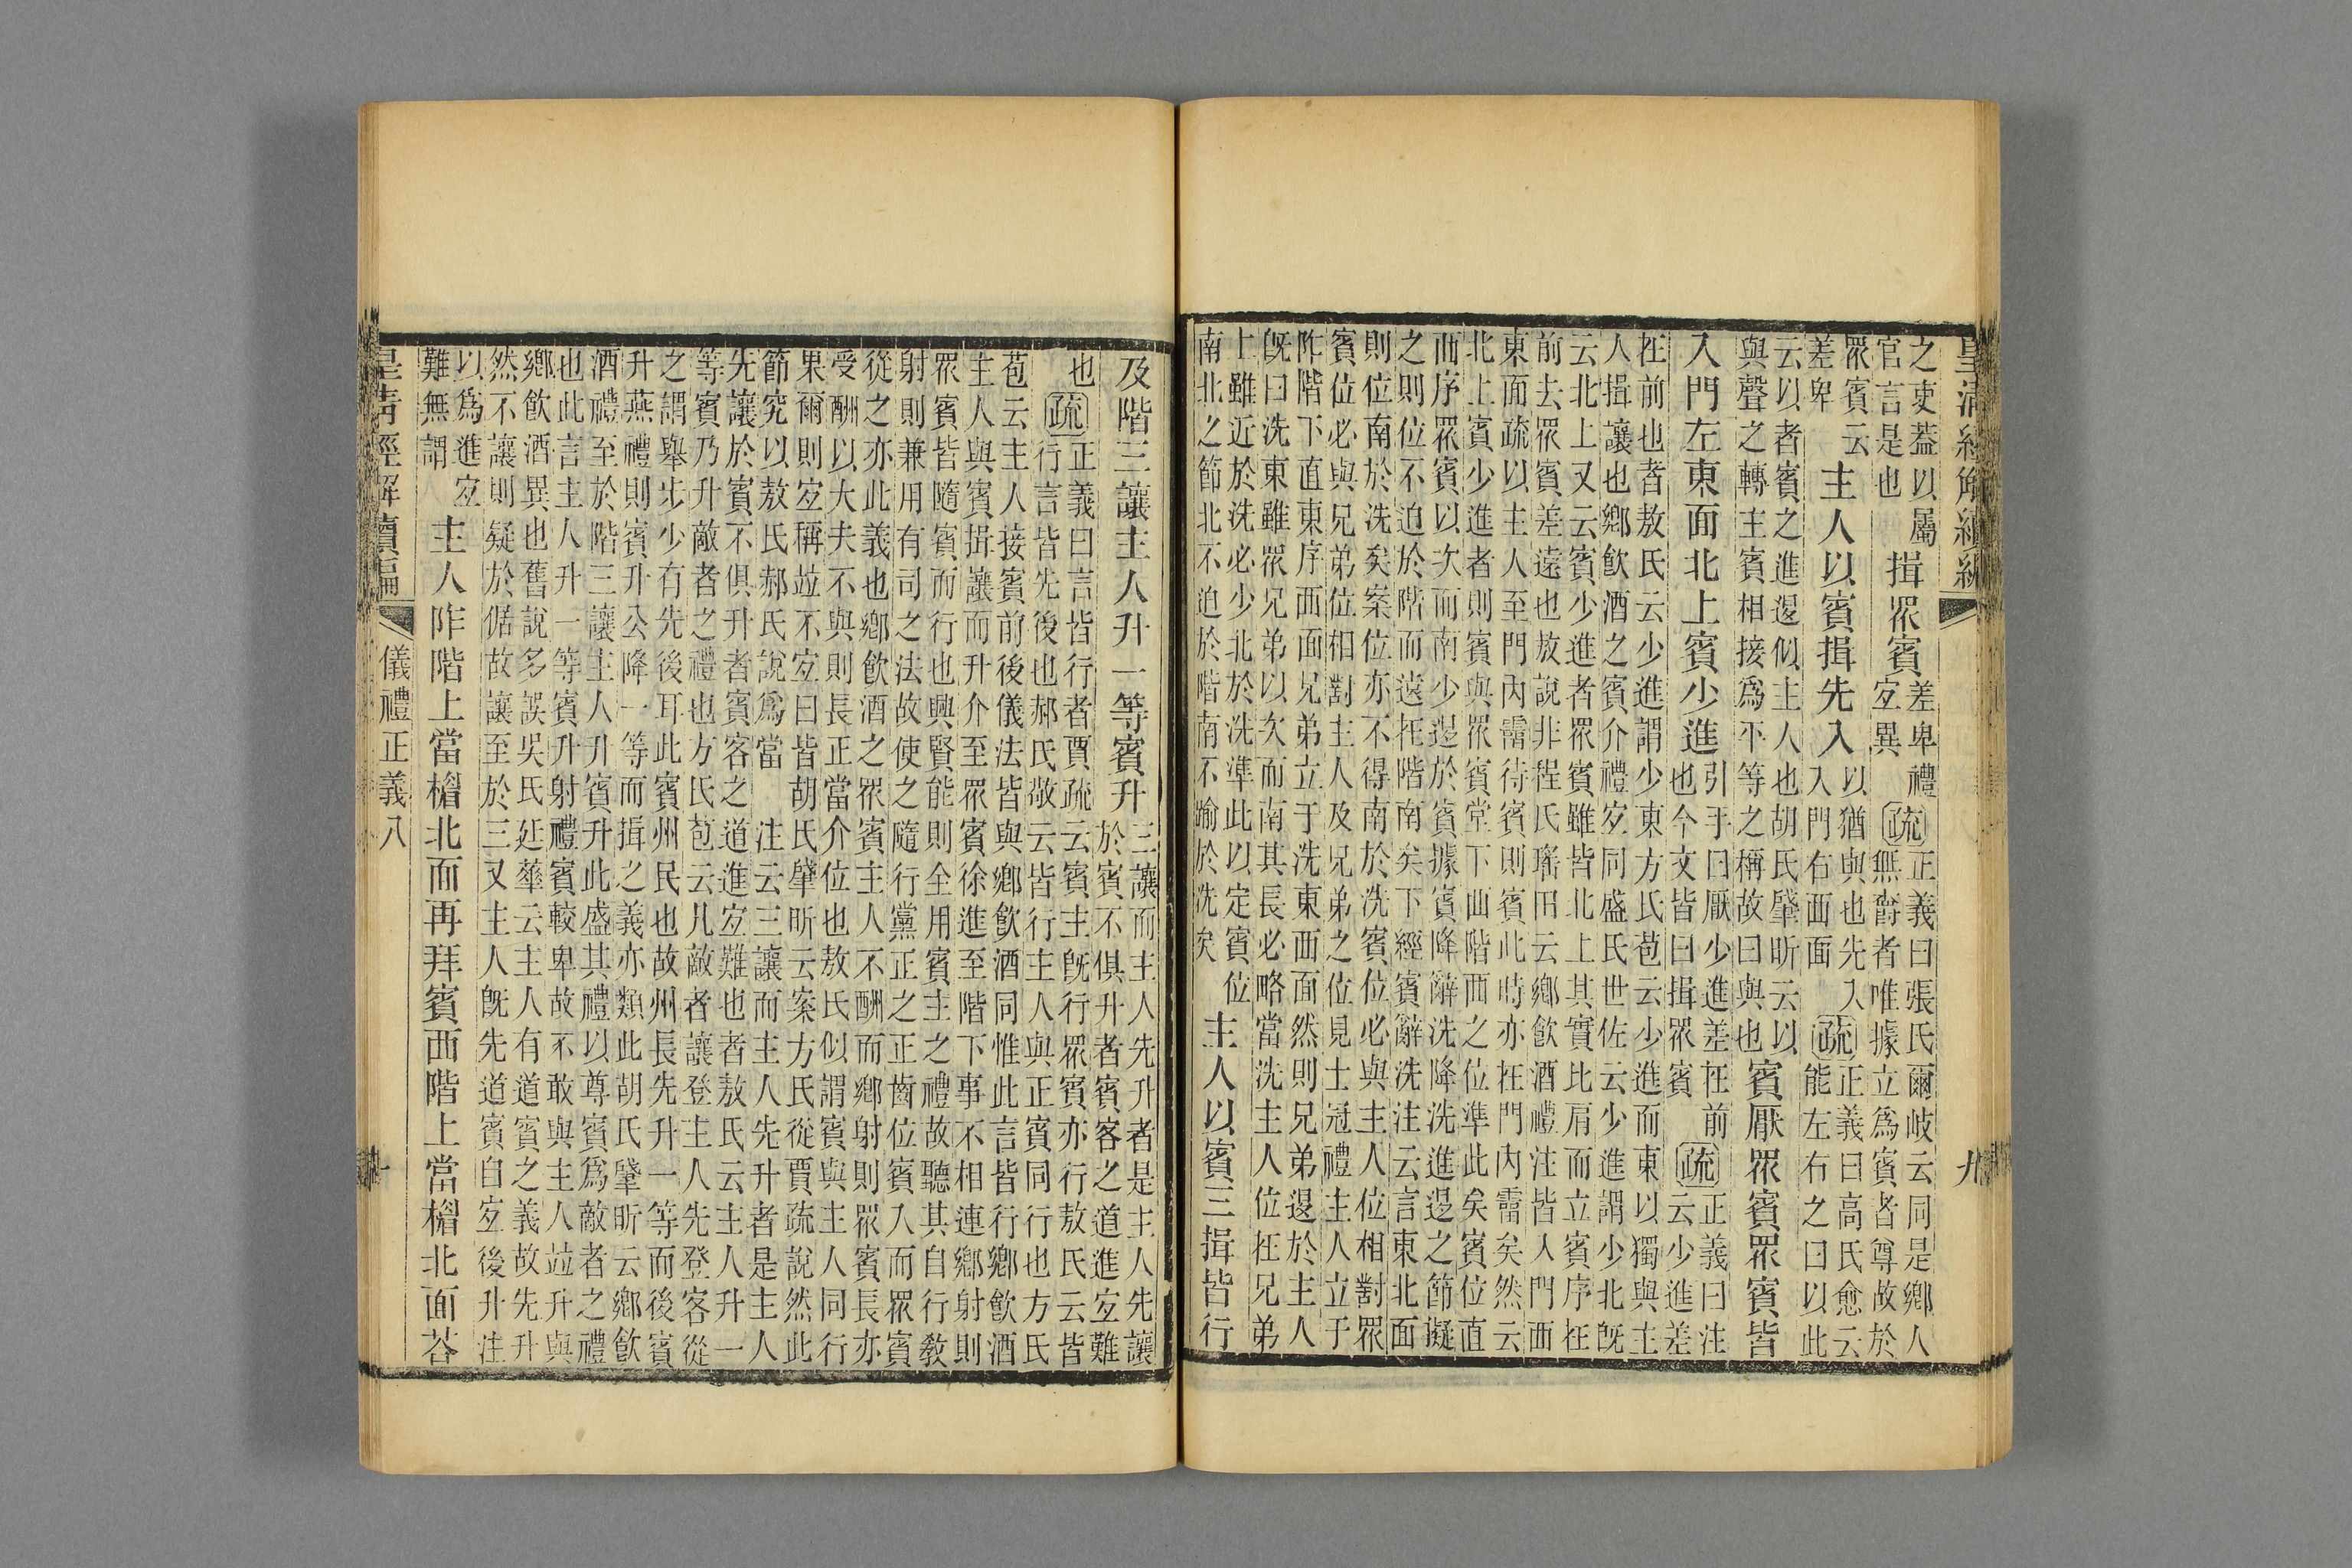 皇清經解續編 九
之吏蓋以屬
官言是也
揖眾賓
差卑禮
宐異
疏
正義曰張氏爾岐云同是鄉人
無爵者唯據立爲賓者尊故於
眾賓云
差卑
主人以賓揖先入
以猶與也先入
入門右西面
疏
正義曰高氏愈云
能左右之曰以此
云以者賓之進退似主人也胡氏肇昕云以
與聲之轉主賓相接爲不等之稱故曰與也
賓厭眾賓眾賓皆
入門左東面北上賓少進
引手曰厭少進差在前
也今文皆曰揖眾賓
疏
正義曰注
云少進差
在前也者敖氏云少進謂少東方氏苞云少進而東以獨與主
人揖讓也鄉飮酒之賓介禮宐同盛氏世佐云少進謂少北旣
云北上又云賓少進者眾賓雖皆北上其實比肩而立賓序在
前去眾賓差遠也敖說非程氏瑤田云鄉飮酒禮注皆入門西
東面疏以主人至門內霤待賓則賓此時亦在門內霤矣然云
北上賓少進者則賓與眾賓堂下曲階西之位準此矣賓位直
西序眾賓以次而南少退於賓據賓降辭洗降洗進退之節擬
之則位不迫於階而遠在階南矣下經賓辭洗注云言東北面
則位南於洗矣案位亦不得南於洗賓位必與主人位相對眾
賓位必與兄弟位相對主人及兄弟之位見士冠禮主人立于
阼階下直東序西面兄弟立于洗東西面然則兄弟退於主人
旣曰洗東雖眾兄弟以次而南其長必略當洗主人位在兄弟
上雖近於洗必少北於洗準此以定賓位
南北之節北不迫於階南不踰於洗矣
主人以賓三揖皆行
及階三讓主人升一等賓升
三讓而主人先升者是主人先讓
於賓不俱升者賓客之道進宐難
也
疏
正義曰言皆行者賈疏云賓主旣行眾賓亦行敖氏云皆
行言皆先後也郝氏敬云皆行主人與正賓同行也方氏
苞云主人接賓前後儀法皆與鄉飮酒同惟此言皆行鄉飮酒
主人與賓揖讓而升介至眾賓徐進至階下事不相連鄉射則
眾賓皆隨賓而行也興賢能則全用賓主之禮故聽其自行敎
射則兼用有司之法故使之隨行黨正之正齒位賓入而眾賓
從之亦此義也鄉飮酒之眾賓主人不酬而鄉射則眾賓長亦
受酬以大夫不與則長正當介位也敖氏似謂賓與主人同行
果爾則宐稱竝不宐曰皆胡氏肇昕云案方氏從賈疏說然此
節究以敖氏郝氏說爲當 注云三讓而主人先升者是主人
先讓於賓不俱升者賓客之道進宐難也者敖氏云主人升一
等賓乃升敵者之禮也方氏苞云凡敵者讓登主人先登客從
之謂舉步少有先後耳此賓州民也故州長先升一等而後賓
升燕禮則賓升公降一等而揖之義亦類此胡氏肇昕云鄉飮
酒禮至於階三讓主人升賓升此盛其禮以尊賓爲敵者之禮
也此言主人升一等賓升射禮賓較卑故不敢與主人竝升與
鄉飮酒異也舊說多誤吳氏廷華云主人有道賓之義故先升
然不讓則疑於倨故讓至於三又主人旣先道賓自宐後升注
以爲進宐
難無謂
主人阼階上當楣北面再拜賓西階上當楣北面荅
皇清經解續編 儀禮正義八